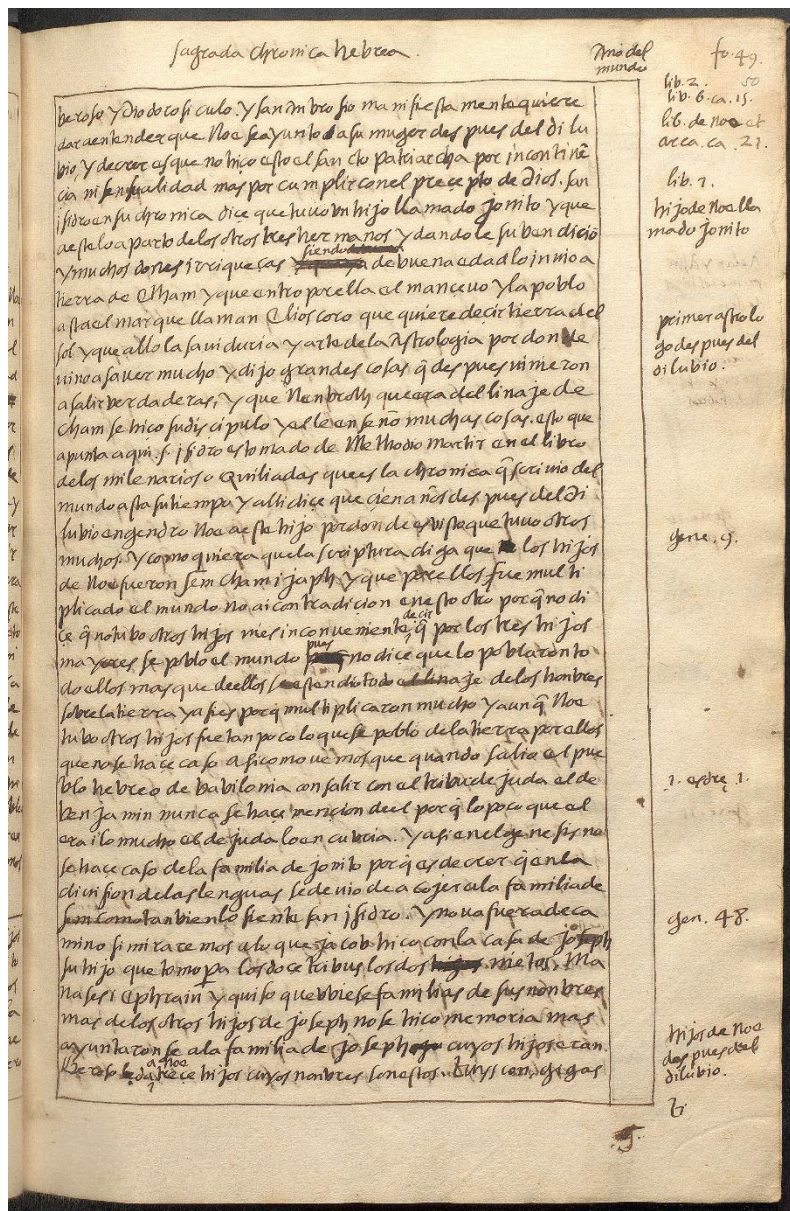 sagrada chronica hebrea.
Año del
mundo
fo. 49.
50
beroso y Diodoro siculo. y san Ambrosio manifiestamente quiere
dar a entender que Noe se ayunto a su muger despues del dilu
bio, y de creer es que no hiço esto el sancto Patriarcha por incontinē
cia ni sensualidad mas por cumplir con el precepto de Dios. san
isidro en su chronica dice que tuuo vn hijo llamado Jonito y que
a este lo aparto de los otros tres hermanos y dandole su bendiciō
y muchos dones i rriqueças siendo de buena edad lo inuio a
tierra de Etham y que entro por ella el manceuo y la poblo
asta el mar que llaman Elioscoro que quiere decir tierra del
sol y que allo la sauiduria y arte de la Astrologia por donde
uino a sauer mucho y dijo grandes cosas q̄ despues uinieron
a salir verdaderas, y que Nenbroth que era del linaje de
cham se hiço su discipulo y el le enseño muchas cosas. esto que
apunta aqui s. isidro es tomado de Methodio martir en el libro
delos milenarios o Quiliadas que es la chronica q̄ scriuio del
mundo asta su tiempo y alli diçe que cien años despues del di
lubio engendro Noe a este hijo por donde es visto que tuuo otros
muchos. y como quiera que la scriptura diga que los hijos
de Noe fueron sem cham i japh y que por ellos fue multi
plicado el mundo no ai contradicion en esto otro porq̄ no di
çe q̄ no tubo otros hijos ni es inconueniente decir q̄ por los tres hijos
mayores se poblo el mundo pues no dice que lo poblaron to
do ellos mas que de ellos se estendio todo el linaje de los honbres
sobre la tierra y asi es porq̄ multiplicaron mucho y aunq̄ Noe
tubo otros hijos fue tan poco lo que se poblo de la tierra por ellos
que no se haçe caso asi como uemos que quando salio el pue
blo hebreo de babilonia con salir con el tribu de juda el de
benjamin nunca se haçe mencion de el porq̄ lo poco que el
era i lo mucho el de juda lo encubria. y asi en el genesis no
se haçe caso de la familia de jonito porq̄ es de creer q̄ en la
diuision de las lenguas se deuio de acojer a la familia de
sem como tanbien lo siente san isidro. y no va fuera de ca
mino si miraremos a lo que jacob hiço con la casa de joseph
su hijo que tomo pa los doçe tribus los dos nietos. Ma
nases i Ephrain y quiso que vbiese familias de sus nonbres
mas de los otros hijos de joseph no se hiço memoria mas
ayuntaronse a la familia de joseph cuyos hijos eran.
Beroso le da a Noe treçe hijos cuyos nonbres son estos. Tuyscon, gigas
lib. 2.
lib. 6. ca. 15.
lib. de noe et
arca. ca. 21.
lib. 1.
hijo de Noe lla
mado jonito
primer astrolo
go despues del
dilubio.
gene. 9.
1. esdre 1.
gen. 48.
hijos de Noe
despues del
dilubio.